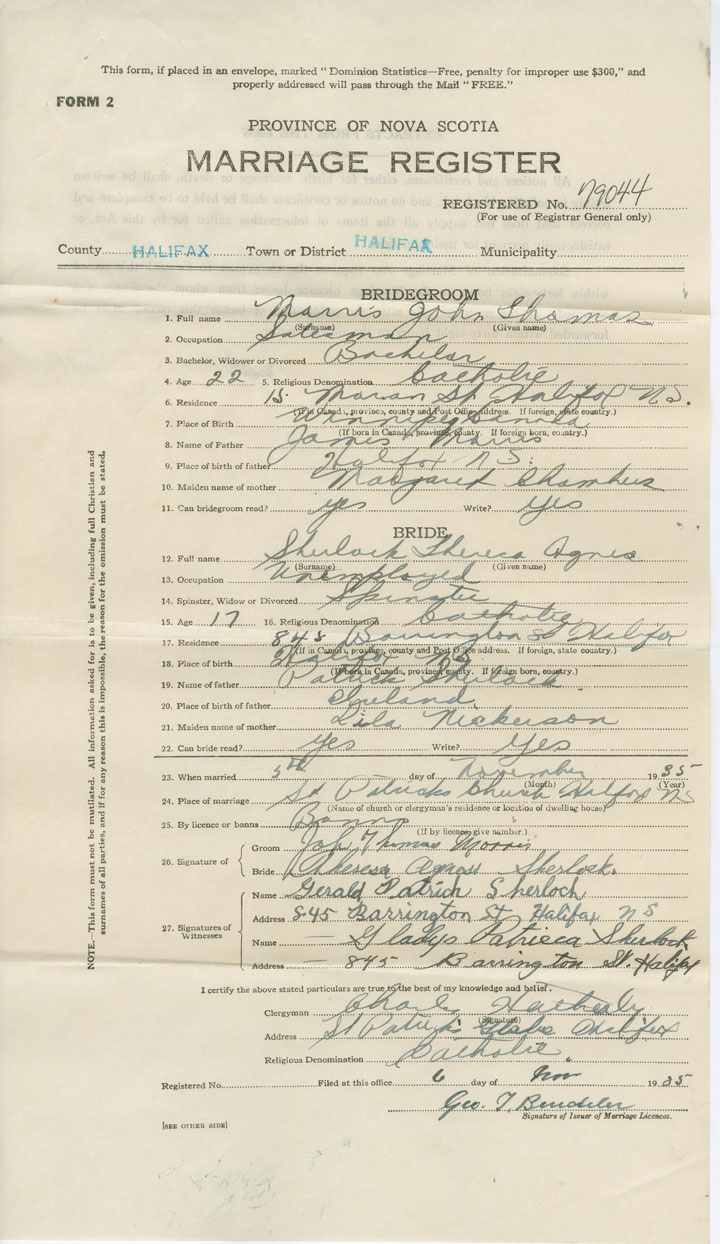 This form, if placed in an envelope, marked "Dominion Statistics—Free, penalty for improper use $300," and
properly addressed will pass through the Mail "FREE."
FORM 2
PROVINCE OF NOVA SCOTIA
MARRIAGE REGISTER
REGISTERED No. 79044
(For use of Registrar General only)
County HALIFAX Town or District HALIFAX Municipality
BRIDEGROOM
1. Full name Morris John Thomas
(Surname) (Given name)
2. Occupation Salesman
3. Bachelor, Widower or Divorced Bachelor
4. Age 22 5. Religious Denomination Catholic
6. Residence 15 Moran St Halifax N.S.
(If in Canada, province, county and Post Office address. If foreign, state country.)
7. Place of Birth Winnipeg Canada
(If born in Canada, province, county. If foreign born, country.)
8. Name of Father James Morris
9. Place of birth of father Halifax N.S.
10. Maiden name of mother Margaret Chambers
11. Can bridegroom read? yes Write? yes
BRIDE
12. Full name Sherlock Theresa Agnes
(Surname) (Given name)
13. Occupation Unemployed
14. Spinster, Widow or Divorced Spinster
15. Age 17 16. Religious Denomination Catholic
17. Residence 845 Barrington St Halifax
(If in Canada, province, county and Post Office address. If foreign, state country.)
18. Place of birth Halifax NS
(If born in Canada, province, county. If foreign born, country.)
19. Name of father Patrick Sherlock
20. Place of birth of father Ireland
21. Maiden name of mother Lila Nickerson
22. Can bride read? Yes Write? Yes
23. When married 5th day of November 1935
(Month) (Year)
24. Place of marriage St Patricks Church Halifax NS
(Name of church or clergyman's residence or location of dwelling house)
25. By licence or banns Banns
(If by licence give number.)
26. Signature of Groom John Thomas Morris
Bride Theresa Agnes Sherlock.
27. Signatures of Witnesses
Name Gerald Patrick Sherlock
Address 845 Barrington St, Halifax NS
Name Gladys Patricia Sherlock
Address — 845 Barrington St. Halifax
I certify the above stated particulars are true to the best of my knowledge and belief.
Clergyman Charles
(Signature)
Address St Patrick's Glebe Halifax
Religious Denomination Catholic
Registered No. Filed at this office 6 day of Nov 1935
Geo. T.
Signature of Issuer of Marriage Licences.
[SEE OTHER SIDE]
NOTE.—This form must not be mutilated. All information asked for is to be given, including full Christian and
surnames of all parties, and if for any reason this is impossible, the reason for the omission must be stated.